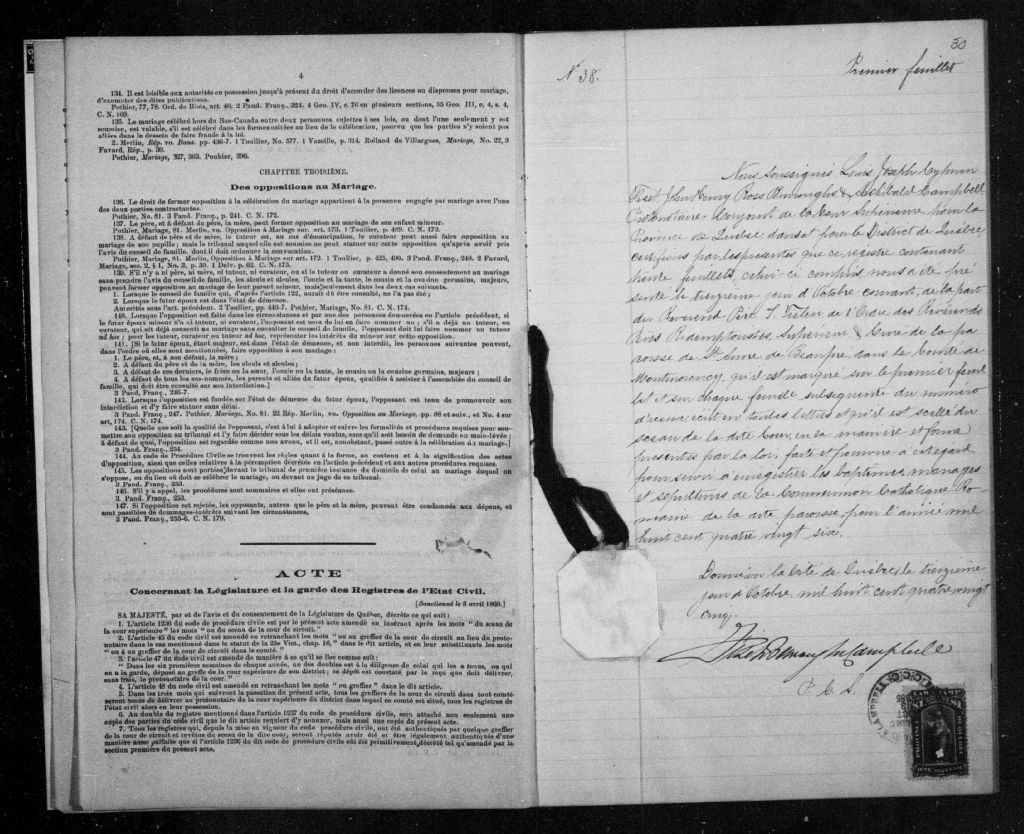 4
134. Il est loisible aux autorités en possession jusqu'à présent du droit d'accorder des licences ou dispenses pour mariage,
d'exempter des dites publications.
Pothier, 77, 78. Ord. de Blois, art. 40. 2 Pand. Franç., 324. 4 Geo. IV, c. 76 en plusieurs sections, 35 Geo. III, c, 4, s. 4,
C. N. 169.
135. Le mariage célébré hors du Bas-Canada entre deux personnes sujettes à ses lois, ou dont l'une seulement y est
soumise, est valable, s'il est célébré dans les formes usitées au lieu de la célébration, pourvu que les parties n'y soient pas
allées dans le dessein de faire fraude à la loi.
2. Merlin, Rép. vo. Bans. pp. 436-7. 1 Toullier, No. 577. 1 Vazeille, p. 314. Rolland de Villargues, Mariage, No. 22, 3
Favard, Rép., p. 30.
Pothier, Mariage, 327, 363. Pouhier, 390.
CHAPITRE TROISIÈME.
Des oppositions au Mariage.
136. Le droit de former opposition à la célébration du mariage appartient à la personne engagée par mariage avec l'une
des deux parties contractantes.
Pothier, No. 81. 3 Pand. Franç., p. 241. C. N. 172.
137. Le père, et à défaut du père, la mère, peut former opposition au mariage de son enfant mineur.
Pothier, Mariage, 81. Merlin, vo. Opposition à Mariage sur. art. 173. 1 Toullier, p. 489. C. N. 173.
138. A défaut de père et de mère, le tuteur et, au cas d'émancipation, le curateur peut aussi faire opposition au
mariage de son pupille ; mais le tribunal auquel elle est soumise ne peut statuer sur cette opposition qu'après avoir pris
l'avis du conseil de famille, dont il doit ordonner la convocation.
Pothier, Mariage, 81. Merlin, Opposition à Mariage sur art. 172. 1 Toullier, p. 425, 490. 3 Pand. Franç., 248. 2 Favard,
Mariage, sec. 2, § 1, No. 3, p. 59. 1 Delv. p. 62. C. N. 173.
139. S'il n'y a ni père, ni mère, ni tuteur, ni curateur, ou si le tuteur ou curateur a donné son consentement au mariage
sans prendre l'avis du conseil de famille, les aïeuls et aïeules, l'oncle et la tante, le cousin et la cousine germains, majeurs,
peuvent former opposition au mariage de leur parent mineur, mais seulement dans les deux cas suivants.
1. Lorsque le conseil de famille qui, d'après l'article 122, aurait dû être consulté, ne l'a pas été ;
2. Lorsque le futur époux est dans l'état de démence.
Autorités sous l'art. précédent. 2 Toullier, pp. 446-7. Pothier, Mariage, No. 81. C. N. 174.
140. Lorsque l'opposition est faite dans les circonstances et par une des personnes énoncées en l'article précédent, si
le futur époux mineur n'a ni tuteur, ni curateur, l'opposant est tenu de lui en faire nommer un ; s'il a déjà un tuteur, ou
curateur, qui ait déjà consenti au mariage sans consulter le conseil de famille, l'opposant doit lui faire nommer un tuteur
ad hoc ; pour les tuteur, curateur ou tuteur ad hoc, représenter les intérêts du mineur sur cette opposition.
141. [Si le futur époux, étant majeur, est dans l'état de démence, et non interdit, les personnes suivantes peuvent,
dans l'ordre où elles sont mentionnées, faire opposition à son mariage :
1. Le père, et, à son défaut, la mère ;
2. A défaut du père et de la mère, les aïeuls et aïeules ;
3. A défaut de ces derniers, le frère ou la sœur, l'oncle ou la tante, le cousin ou la cousine germains, majeurs ;
4. A défaut de tous les sus-nommés, les parents et alliés du futur époux, qualifiés à assister à l'assemblée du conseil de
famille, qui doit être consulté sur son interdiction.]
3 Pand. Franç., 246-7.
142. Lorsque l'opposition est fondée sur l'état de démence du futur époux, l'opposant est tenu de promouvoir son
interdiction et d'y faire statuer sans délai.
3 Pand. Franç., 247. Pothier, Mariage, No. 81. 22 Rép. Merlin, vo. Opposition au Mariage, pp. 88 et suiv., et No. 4 sur
art, 174. C. N. 174.
143. [Quelle que soit la qualité de l'opposant, c'est à lui à adopter et suivre les formalités et procédures requises pour sou-
mettre son opposition au tribunal et l'y faire décider sous les délais voulus, sans qu'il soit besoin de demande en main-levée ;
à défaut de quoi, l'opposition est regardée comme non avenue, et il est, nonobstant, passé outre à la célébration du mariage.]
3 Pand. Franç., 254.
144. Au code de Procédure Civile se trouvent les règles quant à la forme, au contenu et à la signification des actes
d'opposition, ainsi que celles relatives à la péremption décrétée en l'article précédent et aux autres procédures requises.
145. Les oppositions sont portées devant le tribunal de première instance du domicile de celui au mariage duquel on
s'oppose, ou du lieu où doit se célébrer le mariage, ou devant un juge de ce tribunal.
3 Pand. Franç., 253.
146. S'il y a appel, les procédures sont sommaires et elles ont préséance.
3. Pand. Franç., 253.
147. Si l'opposition est rejetée, les opposants, autres que le père et la mère, peuvent être condamnés aux dépens, et
sont passibles de dommages-intérêts suivant les circonstances.
3 Pand. Franç., 255-6. C. N. 179.
ACTE
Concernant la Législature et la garde des Registres de l'Etat Civil.
[Sanctionné le 5 avril 1869.]
SA MAJESTÉ, par et de l'avis et du consentement de la Législature de Québec, décrète ce qui suit :
1. L'article 1236 du code de procédure civile est par le présent acte amendé en insérant après les mots " du sceau de
la cour supérieure " les mots " ou du sceau de la cour de circuit."
2. L'article 45 du code civil est amendé en retranchant les mots " ou au greffier de la cour de circuit au lieu du proto-
notaire dans le cas mentionné dans le statut de la 25e Vict., chap. 16," dans le dit article, et en leur substituant les mots
" ou à un greffier de la cour de circuit dans le comté."
3. l'article 47 du code civil est amendé de manière à ce qu'il se lise comme suit :
" Dans les six premières semaines de chaque année, un des doubles est à la diligence de celui qui les a tenus, ou qui
en a la garde, déposé au greffe de la cour supérieure de son district ; ce dépôt est constaté par le reçu que doit délivrer,
sans frais, le protonotaire de la cour."
4. L'article 48 du code civil est amendé en retranchant les mots " ou greffier" dans le dit article.
5. Dans les trois mois qui suivront la passation du présent acte, tous les greffiers de la cour de circuit dans tout comté
seront tenus de délivrer au protonotaire de la cour supérieure du district dans lequel ce comté est situé, tous les registres de
l'état civil alors en leur possession.
6. Au double du registre mentionné dans l'article 1237 du code de procédure civile, sera attaché non seulement une
copie des parties du code civil que le dit article requiert d'y annexer, mais aussi une copie du présent acte.
7. Tous les registres qui, depuis la mise en vigueur du code de procédure civile, ont été authentiqués par quelque greffier
de la cour de circuit et revêtus du sceau de la dite cour, seront réputés avoir été et être légalement authentiqués d'une
manière aussi parfaite que si l'article 1236 du dit code de procédure civile eût été primitivement décrété tel qu'amendé par la
section première du présent acte.
30
N. 38.
Premier feuillet
Nous soussignés Louis Joseph Cyprien
Fiset, John Henry Ross Burroughs & Archibald Campbell
Protonotaire Conjoint de la Cour Supérieure pour la
Province de Québec dans & pour le District de Québec
certifions par les présentes que ce registre contenant
feuillets, celui-ci compris nous a été pré
senté le treizième jour d'Octobre courant, de la part
du Révérend Père de l'Ordre des Révérends
Pères Rédemptoristes, Supérieur & Curé de la pa
roisse de Ste Anne de Beaupré, dans le Comté de
Montmorency, qu'il est marqué sur le premier feuil
let et sur chaque feuillet subséquent du numéro
écrit en toutes lettres et qu'il est scellé du
sceau de la dite Cour, en la manière et forme
prescrites par la loi, faite et pourvue à cet égard
pour servir à enregistrer les baptêmes, mariages
et sépultures de la Communion Catholique Ro-
maine de la dite paroisse, pour l'année mil
huit cent quatre vingt six.
Donné en la Cité de Québec, le treizième
jour d'Octobre mil huit cent quatre vingt
cinq.
Fiset Burroughs Campbell
P. C. S.